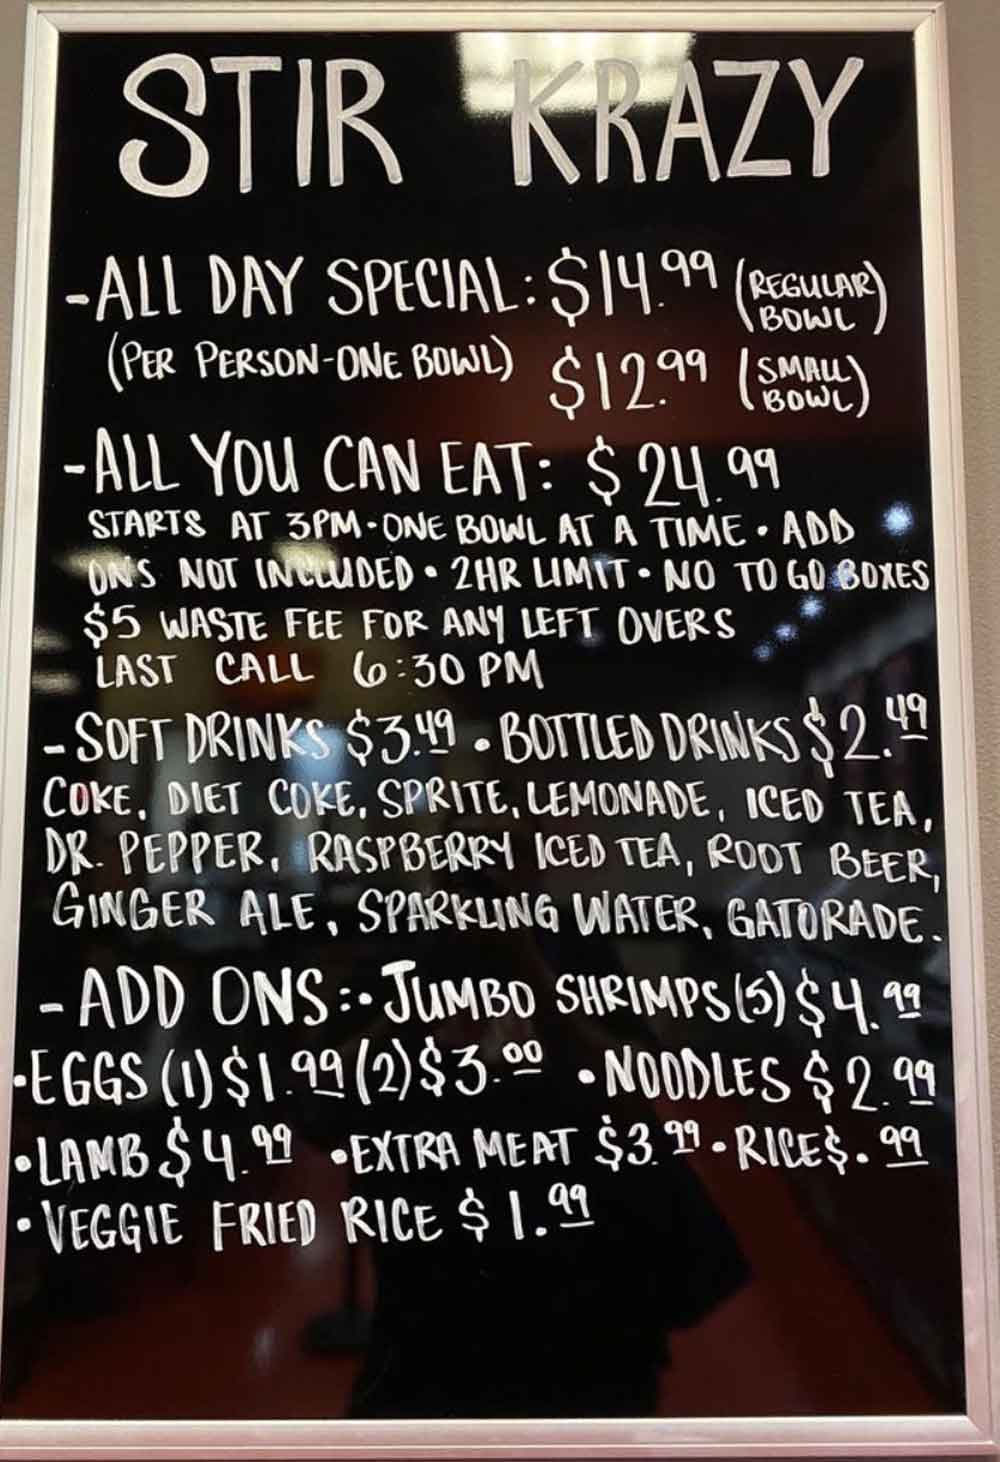 STIR KRAZY
-ALL DAY SPECIAL: $14.99 (REGULAR BOWL)
(PER PERSON-ONE BOWL) $12.99 (SMALL BOWL)
-ALL YOU CAN EAT: $24.99
STARTS AT 3PM·ONE BOWL AT A TIME·ADD
ON'S NOT INCLUDED·2HR LIMIT·NO TO GO BOXES
$5 WASTE FEE FOR ANY LEFT OVERS
LAST CALL 6:30 PM
-SOFT DRINKS $3.49 ·BOTTLED DRINKS $2.49
COKE, DIET COKE, SPRITE, LEMONADE, ICED TEA,
DR. PEPPER, RASPBERRY ICED TEA, ROOT BEER,
GINGER ALE, SPARKLING WATER, GATORADE.
-ADD ONS:·JUMBO SHRIMPS (5) $4.99
·EGGS (1) $1.99 (2) $3.00 ·NOODLES $2.99
·LAMB $4.99 ·EXTRA MEAT $3.99 ·RICE $.99
·VEGGIE FRIED RICE $1.99